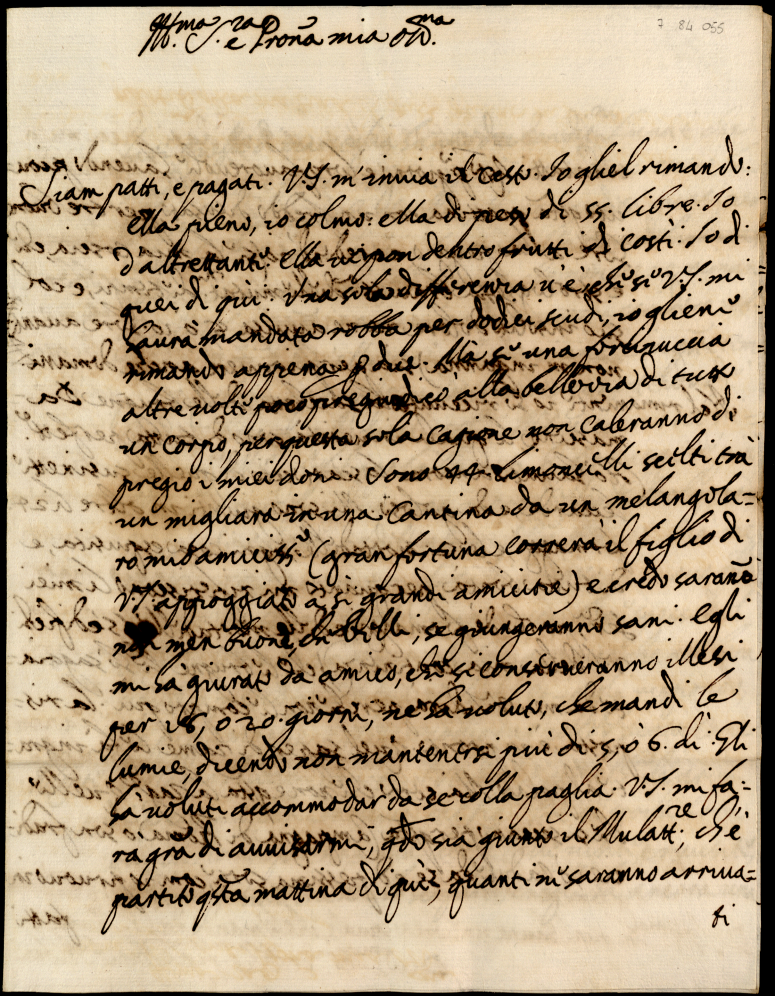 7 84 055
Ill.ma S.ra e Pron̄a mia oss.ma
Siam patti, e pagati. V.S. m'inuia il cesto. Io gliel rimando:
ella pieno, io colmo: ella di peso di 55. libre. Io
d'altrettanti. ella ui pon dentro frutti di costì. Io di
quei di quì. Vna sola differenza u'è, che se V.S. mi
haurà mandata robba per dodici scudi, io gliene
rimando appena p due. Ma se una
altre uolte poco pregiudicò alla bellezza di tutto
un corpo, per questa sola cagione non caleranno di
pregio i miei doni. Sono 44 Limoncelli scelti trà
un migliara in una Cantina da un melangola=
ro mio amiciss.o (gran fortuna correrà il figlio di
V.S. appoggiato à sì grandi amicitie) e credo sarann̄o
non men buoni, che belli, se giungeranno sani. Egli
mi hà giurato da amico, che si conserueranno illesi
per 18, ò 20. giorni, ne hà uoluto, che mandi le
lumie, dicendo non mantenersi più di 5, ò 6. dì. Gli
hà uoluti accommodar da se colla paglia. V.S. mi fa=
rà gr̄a di auuisarmi, qdo sia giunto il Mulatt.re, ch'è
partito q̄sta mattina di quì, quanti ne saranno arriua=
ti